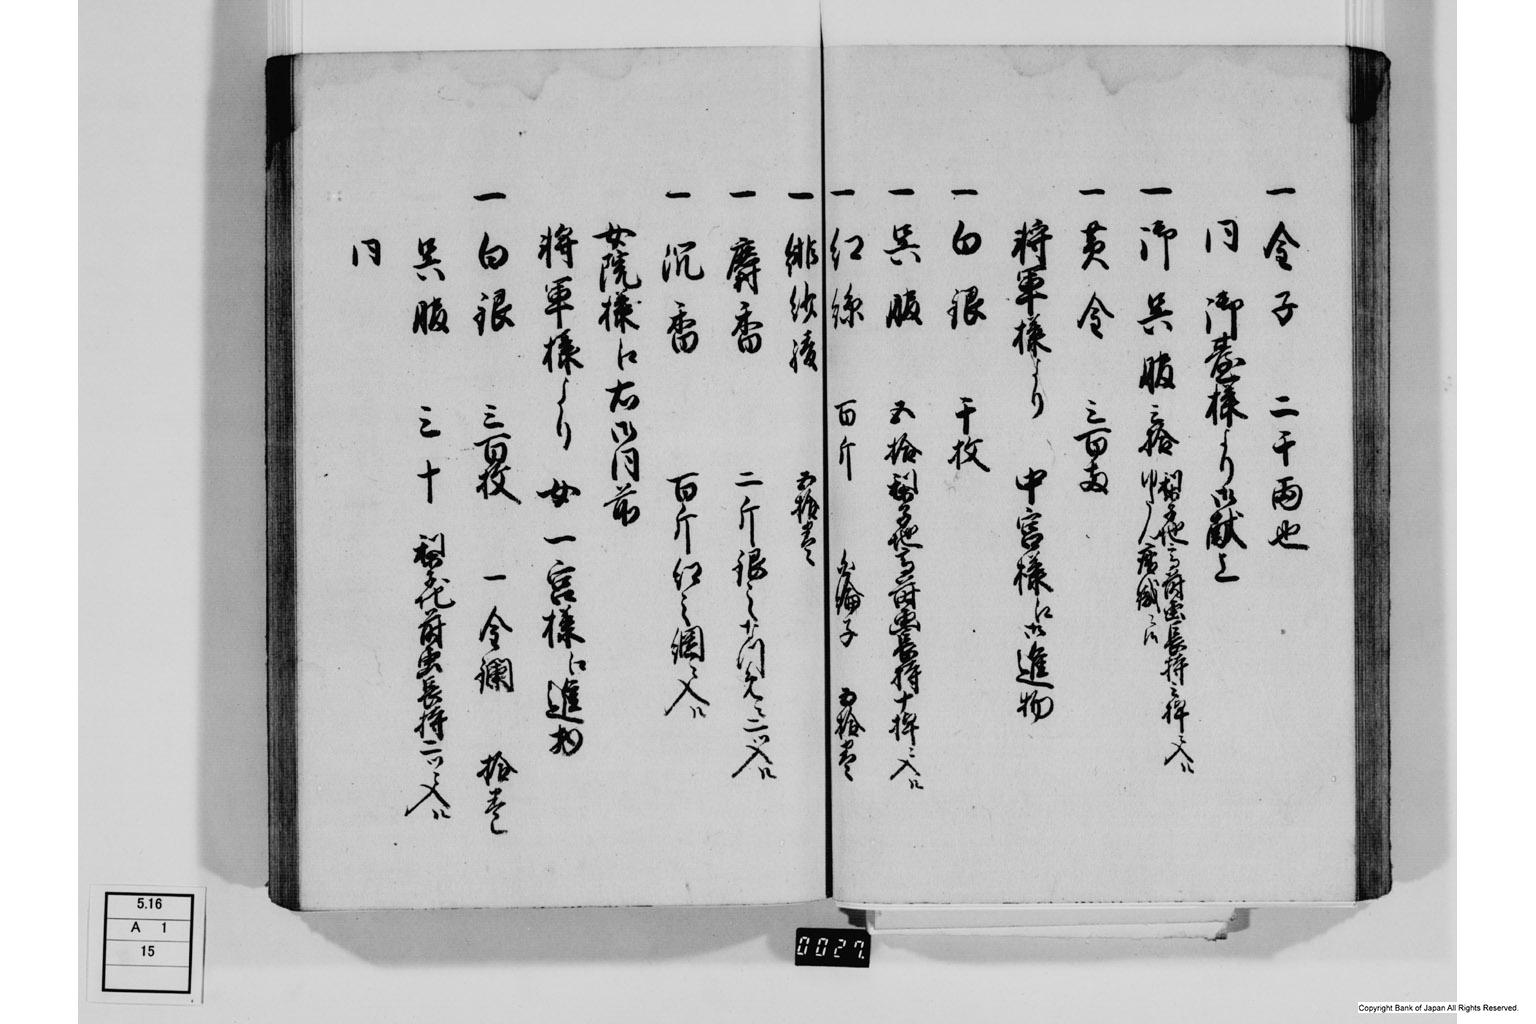 一 金子 二千両也
同 御臺様より御献上
一 御呉服 三拾 梨子地ニ高蒔絵長持三棹ニ入ル
一 黄金 三百両
将軍様より 中宮様江御進物
一 白銀 千枚
一 呉服 五拾 梨子地高蒔絵長持十棹ニ入ル
一 紅絲 百斤 色綸子 五拾巻
一 緋紗綾 五拾巻
一 麝香 二斤 銀之
一 沉香 百斤 紅之網ニ入ル
女院様江右御同前
将軍様より 女一宮様江進物
一 白銀 三百枚 一 金襴 拾巻
呉服 三十 蒔絵長持二ツニ入ル
同
5.16
A 1
15
0027.
Copyright Bank of Japan All Rights Reserved.